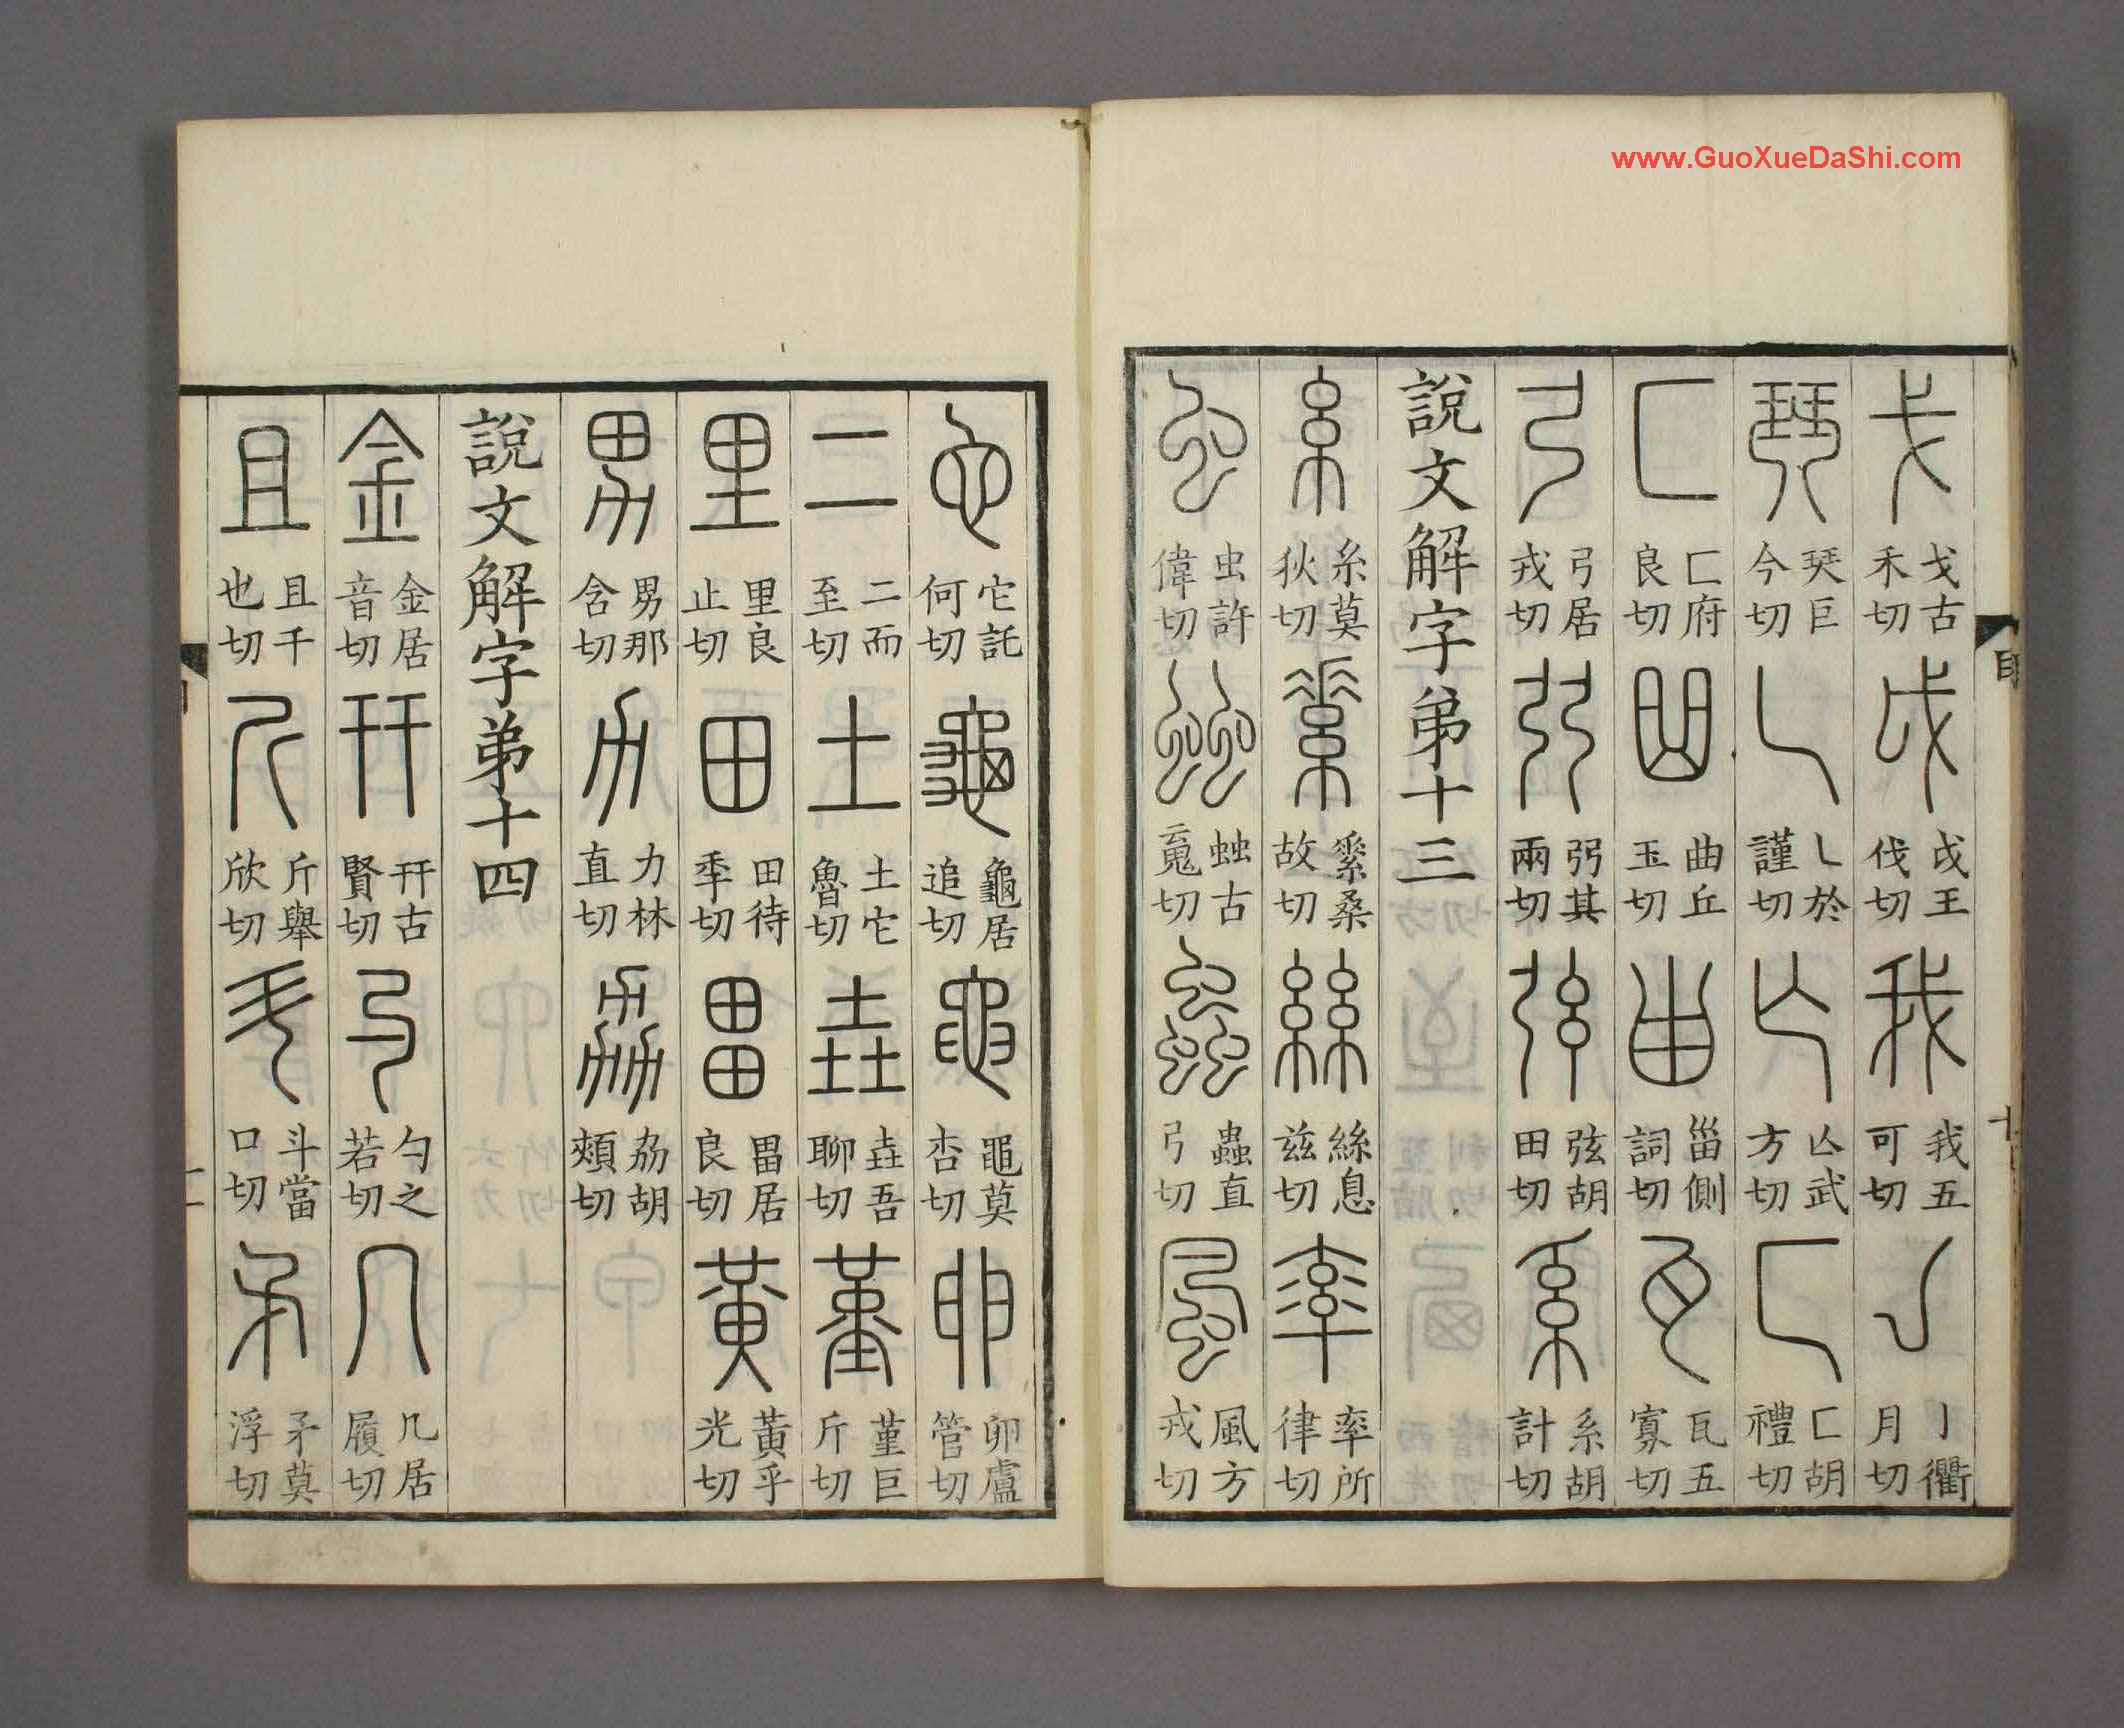 www.GuoXueDaShi.com
戈 戈古禾切 戉 戉王伐切 我 我五可切 亅 亅衢月切
珡 珡巨今切 乚 乚於謹切 亾 亾武方切 匸 匸胡禮切
匚 匚府良切 曲 曲丘玉切 甾 甾側詞切 瓦 瓦五寡切
弓 弓居戎切 弜 弜其兩切 弦 弦胡田切 系 系胡計切
說文解字弟十三
糸 糸莫狄切 素 素桑故切 絲 絲息茲切 率 率所律切
虫 虫許偉切 䖵 䖵古䰟切 蟲 蟲直弓切 風 風方戎切
它 它託何切 龜 龜居追切 黽 黽莫杏切 卵 卵盧管切
二 二而至切 土 土它魯切 垚 垚吾聊切 堇 堇巨斤切
里 里良止切 田 田待秊切 畕 畕居良切 黃 黃乎光切
男 男那含切 力 力林直切 劦 劦胡頰切
說文解字弟十四
金 金居音切 幵 幵古賢切 勺 勺之若切 几 几居履切
且 且千也切 斤 斤舉欣切 斗 斗當口切 矛 矛莫浮切